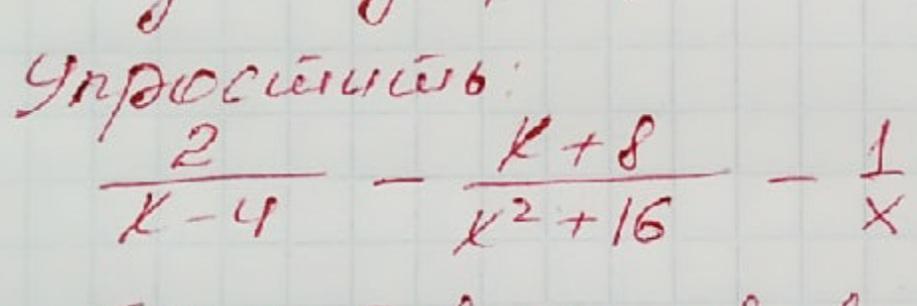 Упростить:
2/(x-4) - (x+8)/(x²+16) - 1/x